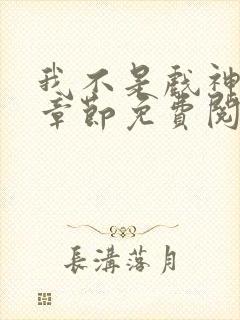 我不是戲神
章節免費閱
長溝落月